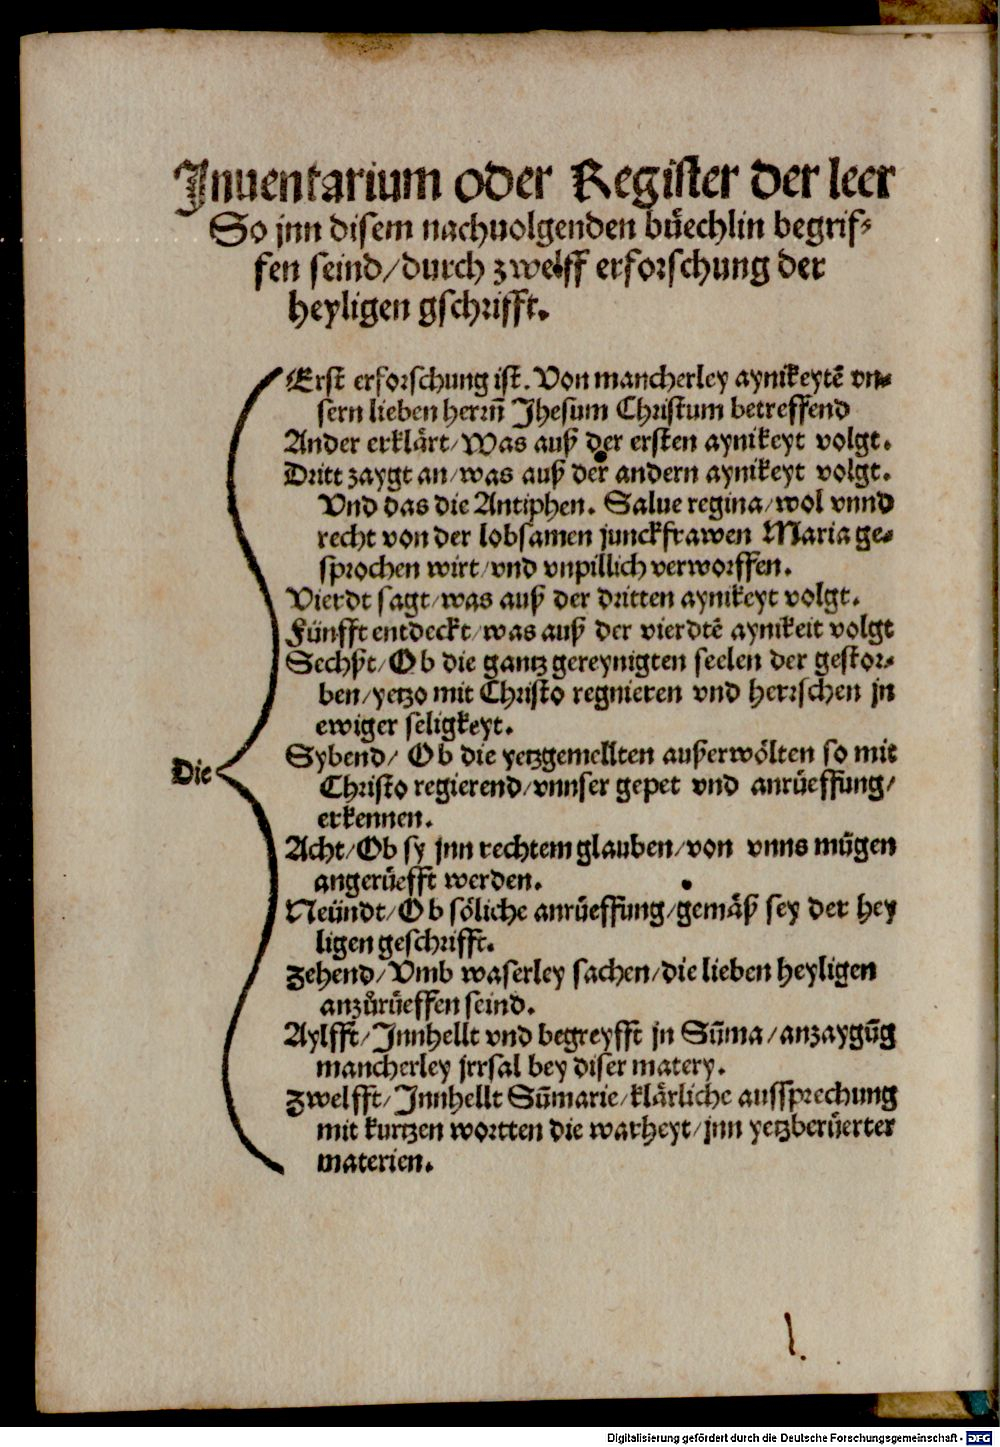 Jnuentarium oder Register der leer
So jnn disem nachuolgenden büechlin begrif-
fen seind/durch zwelff erforschung der
heyligen gschrifft.
Erst erforschung ist. Von mancherley aynikeytē vn-
sern lieben herrn̄ Jhesum Christum betreffend
Ander erklärt/Was auß der ersten aynikeyt volgt.
Dritt zaygt an/was auß der andern aynikeyt volgt.
Vnd das die Antiphen. Salue regina/wol vnnd
recht von der lobsamen junckfrawen Maria ge-
sprochen wirt/vnd vnpillich verworffen.
Vierdt sagt/was auß der dritten aynikeyt volgt.
Fünfft entdeckt/was auß der vierdtē aynikeit volgt
Sechßt/Ob die gantz gereynigten seelen der gestor-
ben/yetzo mit Christo regnieren vnd herrschen jn
ewiger seligkeyt.
Die
Sybend/ Ob die yetzgemellten außerwölten so mit
Christo regierend/vnnser gepet vnd anrüeffung/
erkennen.
Acht/Ob sy jnn rechtem glauben/von vnns mügen
angerüefft werden.
Neündt/Ob söliche anrüeffung/gemäß sey der hey
ligen geschrifft.
Zehend/Vmb waserley sachen/die lieben heyligen
anzůrüeffen seind.
Aylfft/Jnnhellt vnd begreyfft jn Sūma/anzaygūg
mancherley jrrsal bey diser matery.
Zwelfft/Jnnhellt Sūmarie/klärliche aussprechung
mit kurtzen wortten die warheyt/jnn yetzberüerter
materien.
Digitalisierung gefördert durch die Deutsche Forschungsgemeinschaft - DFG